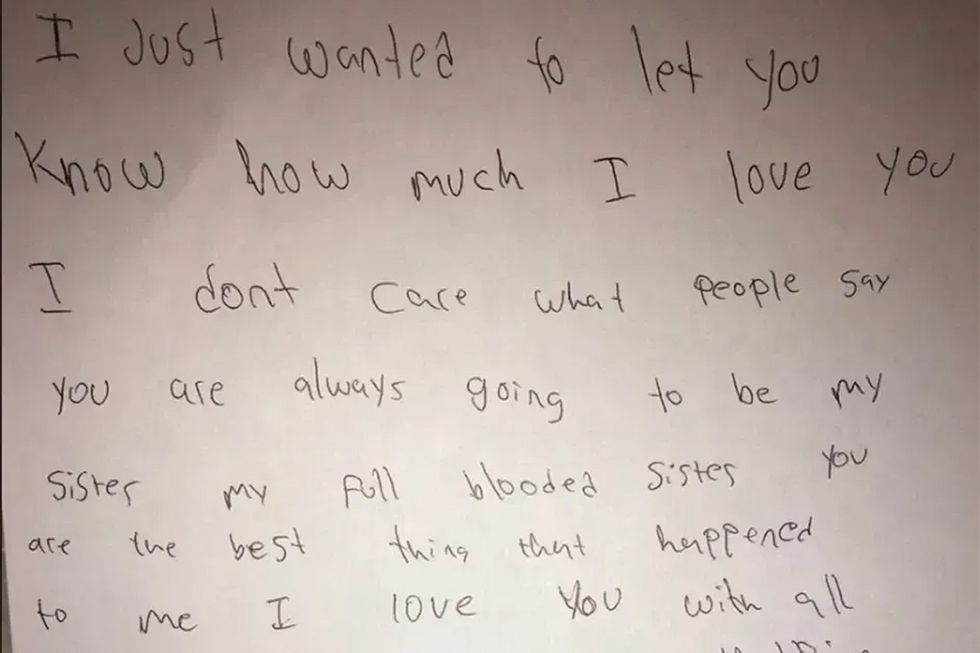 I Just wanted to let you
Know how much I love you
I dont care what people say
you are always going to be my
sister my full blooded sister you
are the best thing that happened
to me I love you with all